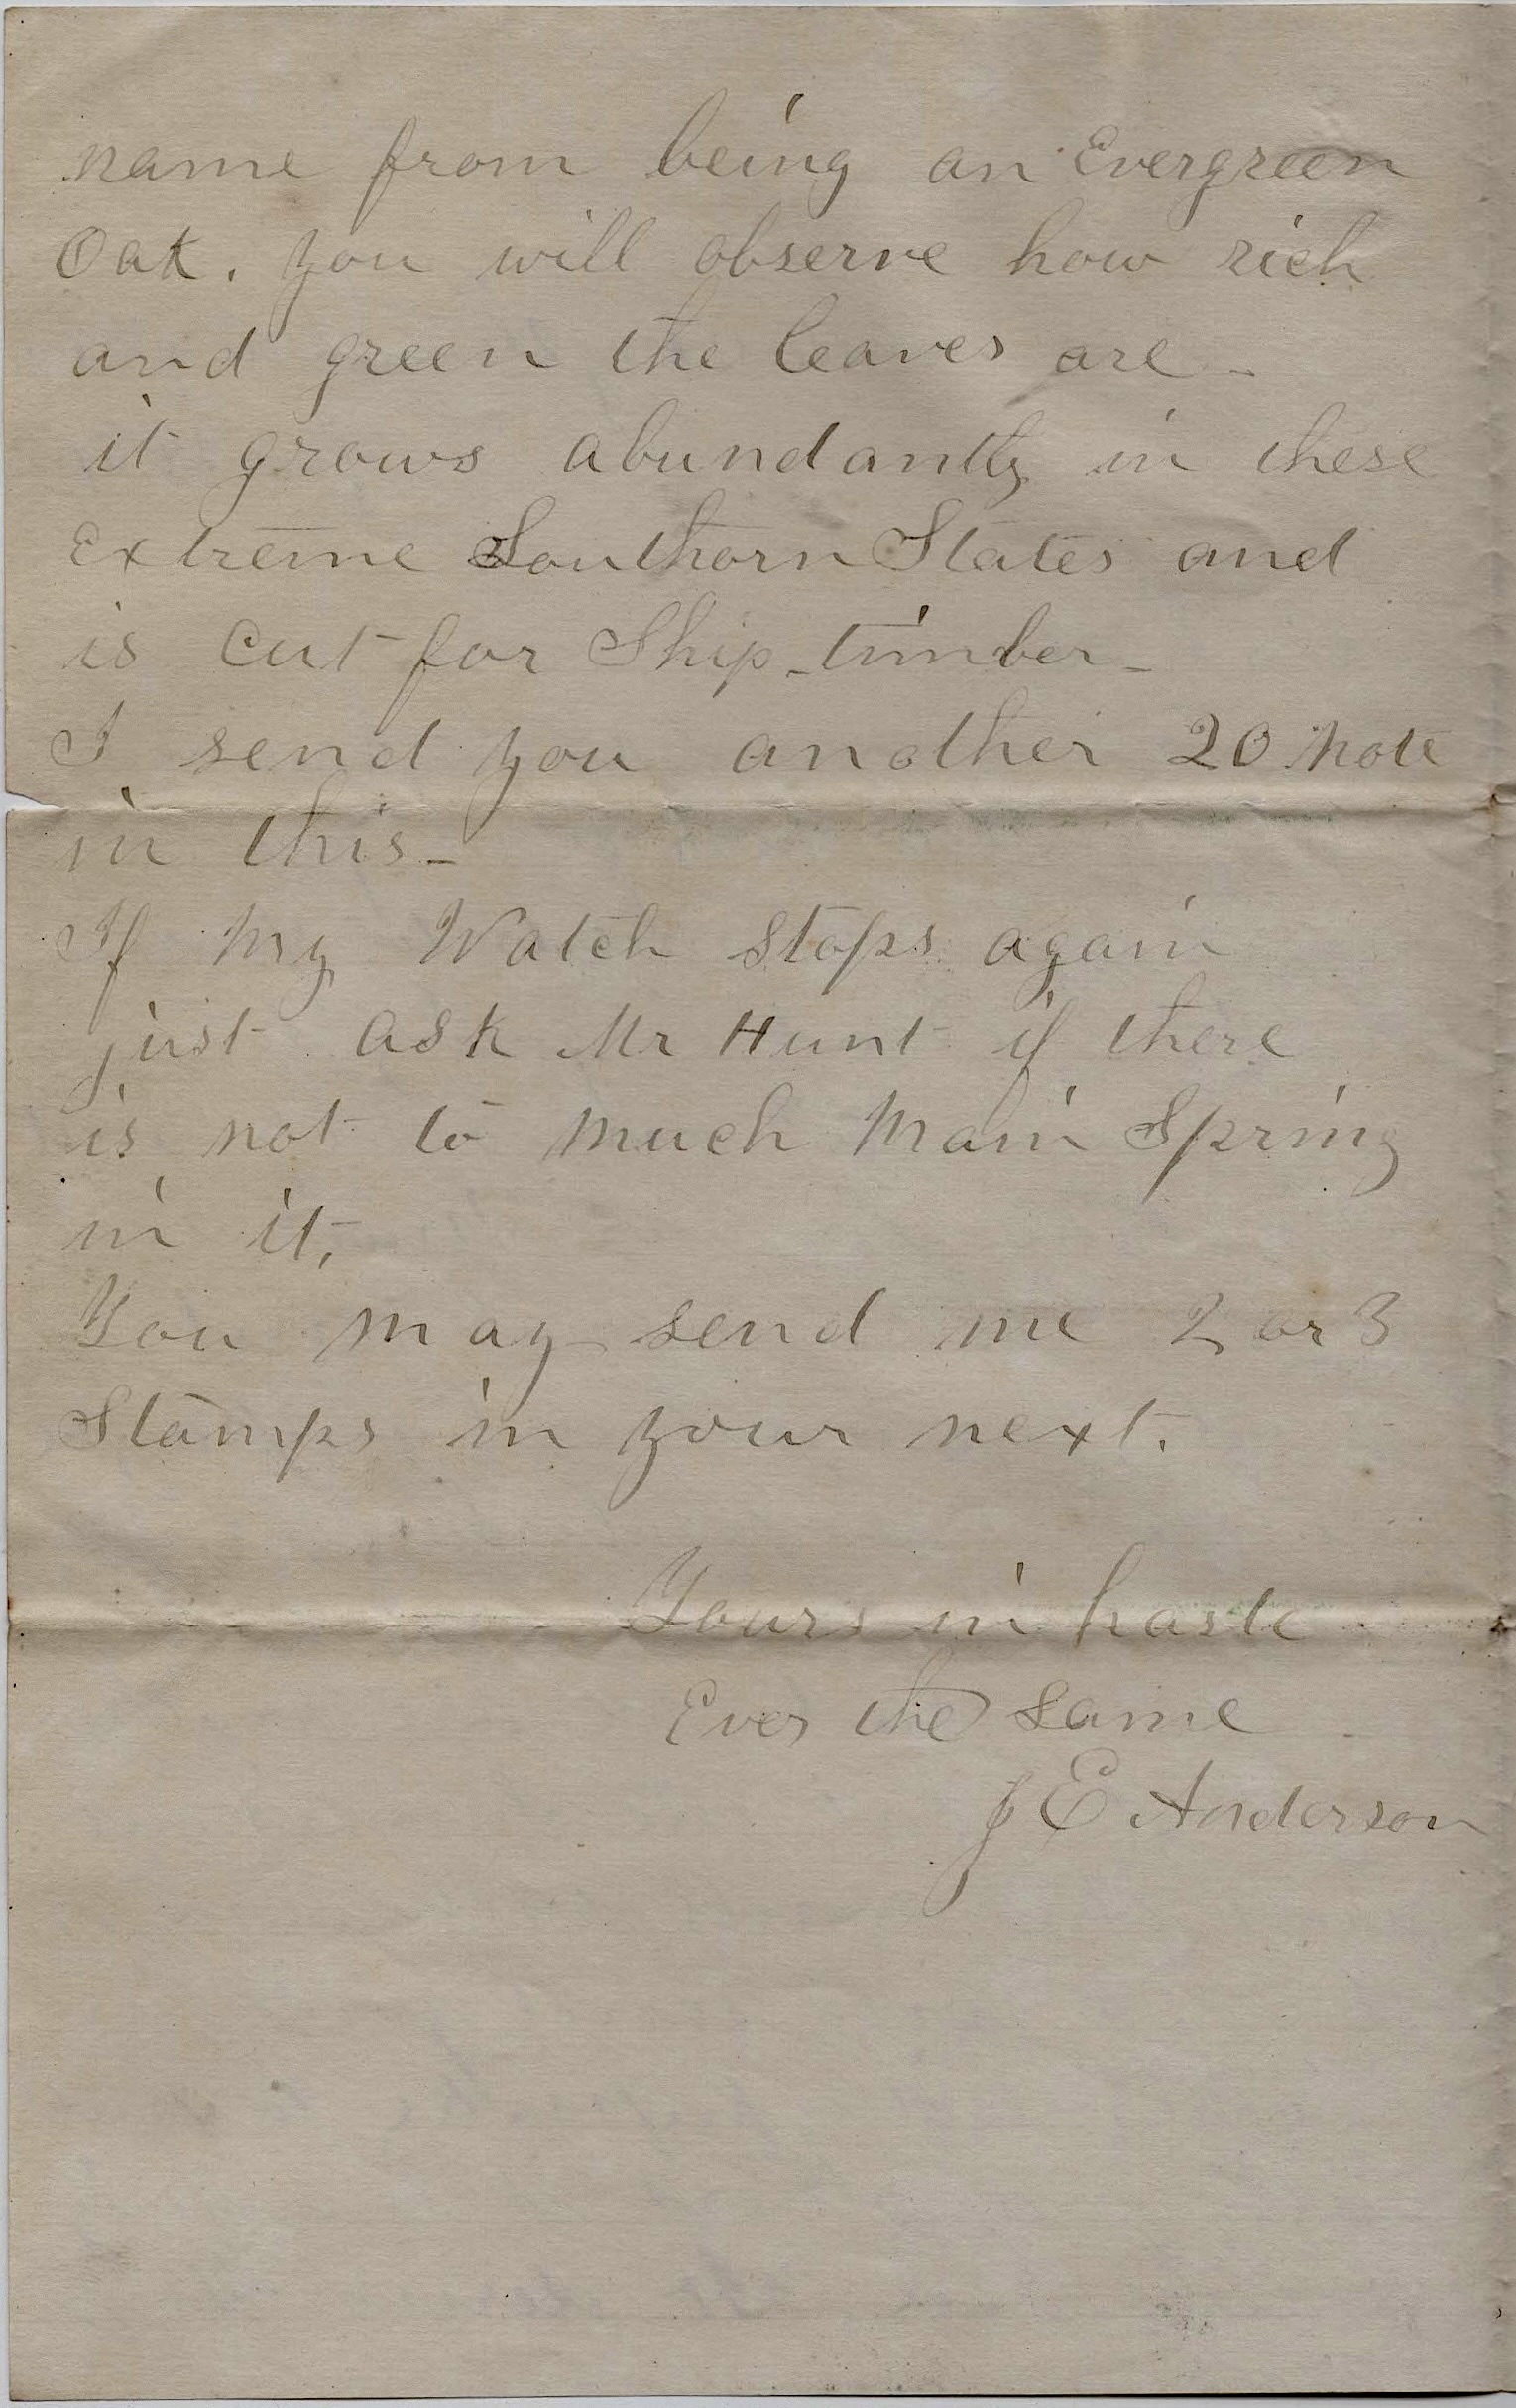 name from being an Evergreen
Oak. you will observe how rich
and green the leaves are -
it grows abundantly in these
Extreme Southorn States and
is Cut for Ship-timber -
I send you another 20 note
in this -
If My Watch Stops again
just ask Mr Hunt if there
is not to much Main Spring
in it,
You may send me 2 or 3
Stamps in your next.
Yours in haste
Ever the same
J E Anderson